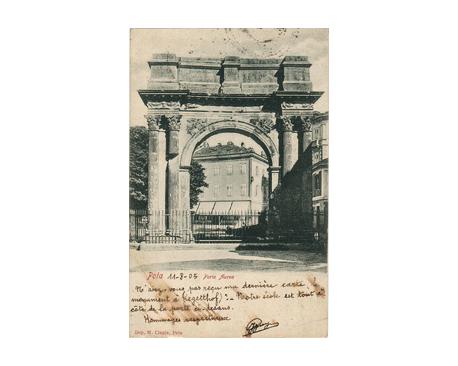 Pola 11-8-05 Porta Aurea
N'avez-vous pas reçu ma dernière carte
(monument à Tegetthof)? - Notre école est tout à
côté de la porte ci-dessus.
Hommages respectueux
Dep. M. Clapis, Pola